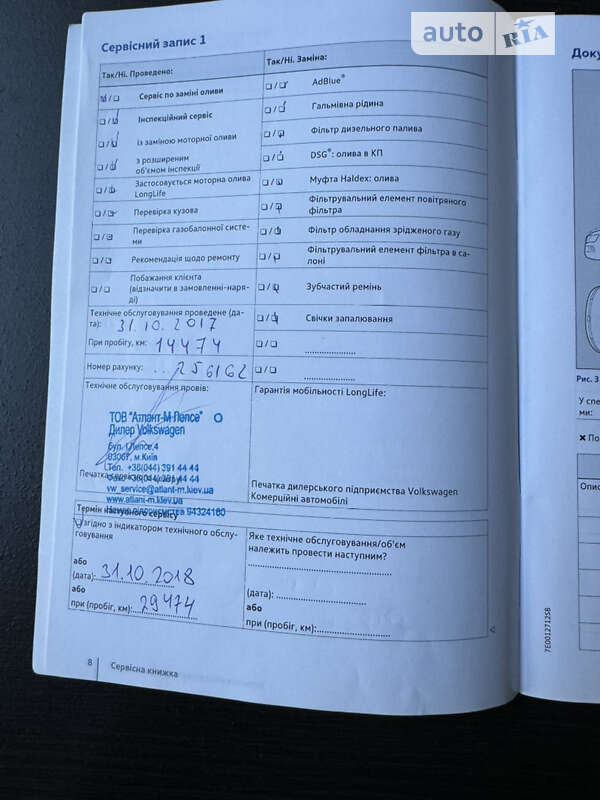 auto RIA
Сервісний запис 1
Так/Ні. Проведено:
Так/Ні. Заміна:
Сервіс по заміні оливи
AdBlue®
Інспекційний сервіс
Гальмівна рідина
із заміною моторної оливи
Фільтр дизельного палива
з розширеним
об'ємом інспекції
DSG®: олива в КП
Застосовується моторна олива
LongLife
Муфта Haldex: олива
Перевірка кузова
Фільтрувальний елемент повітряного
фільтра
Перевірка газобалонної систе-
ми
Фільтр обладнання зрідженого газу
Рекомендація щодо ремонту
Фільтрувальний елемент фільтра в са-
лоні
Побажання клієнта
(відзначити в замовленні-наря-
ді)
Зубчастий ремінь
Технічне обслуговування проведене (да-
та): 31.10.2017
Свічки запалювання
При пробігу, км: 14474
Номер рахунку: 256162
Технічне обслуговування провів:
Гарантія мобільності LongLife:
ТОВ "Атлант-М Лепсе"
Дилер Volkswagen
бул. І.Лепсе,4
03067, м.Київ
Тел. +38(044) 391 44 44
vw_service@atlant-m.kiev.ua
www.atlant-m.kiev.ua
Номер підприємства 94324160
Печатка дилерського підприємства Volkswagen
Комерційні автомобілі
Термін наступного сервісу
Узгідно з індикатором технічного обслу-
говування
Яке технічне обслуговування/об'єм
належить провести наступним?
або
(дата): 31.10.2018
або
при (пробіг, км): 29474
(дата):
або
при (пробіг, км):
8
Сервісна книжка
7E0012712SB
Доку
Рис. 3
У спе
ми:
По
Опис